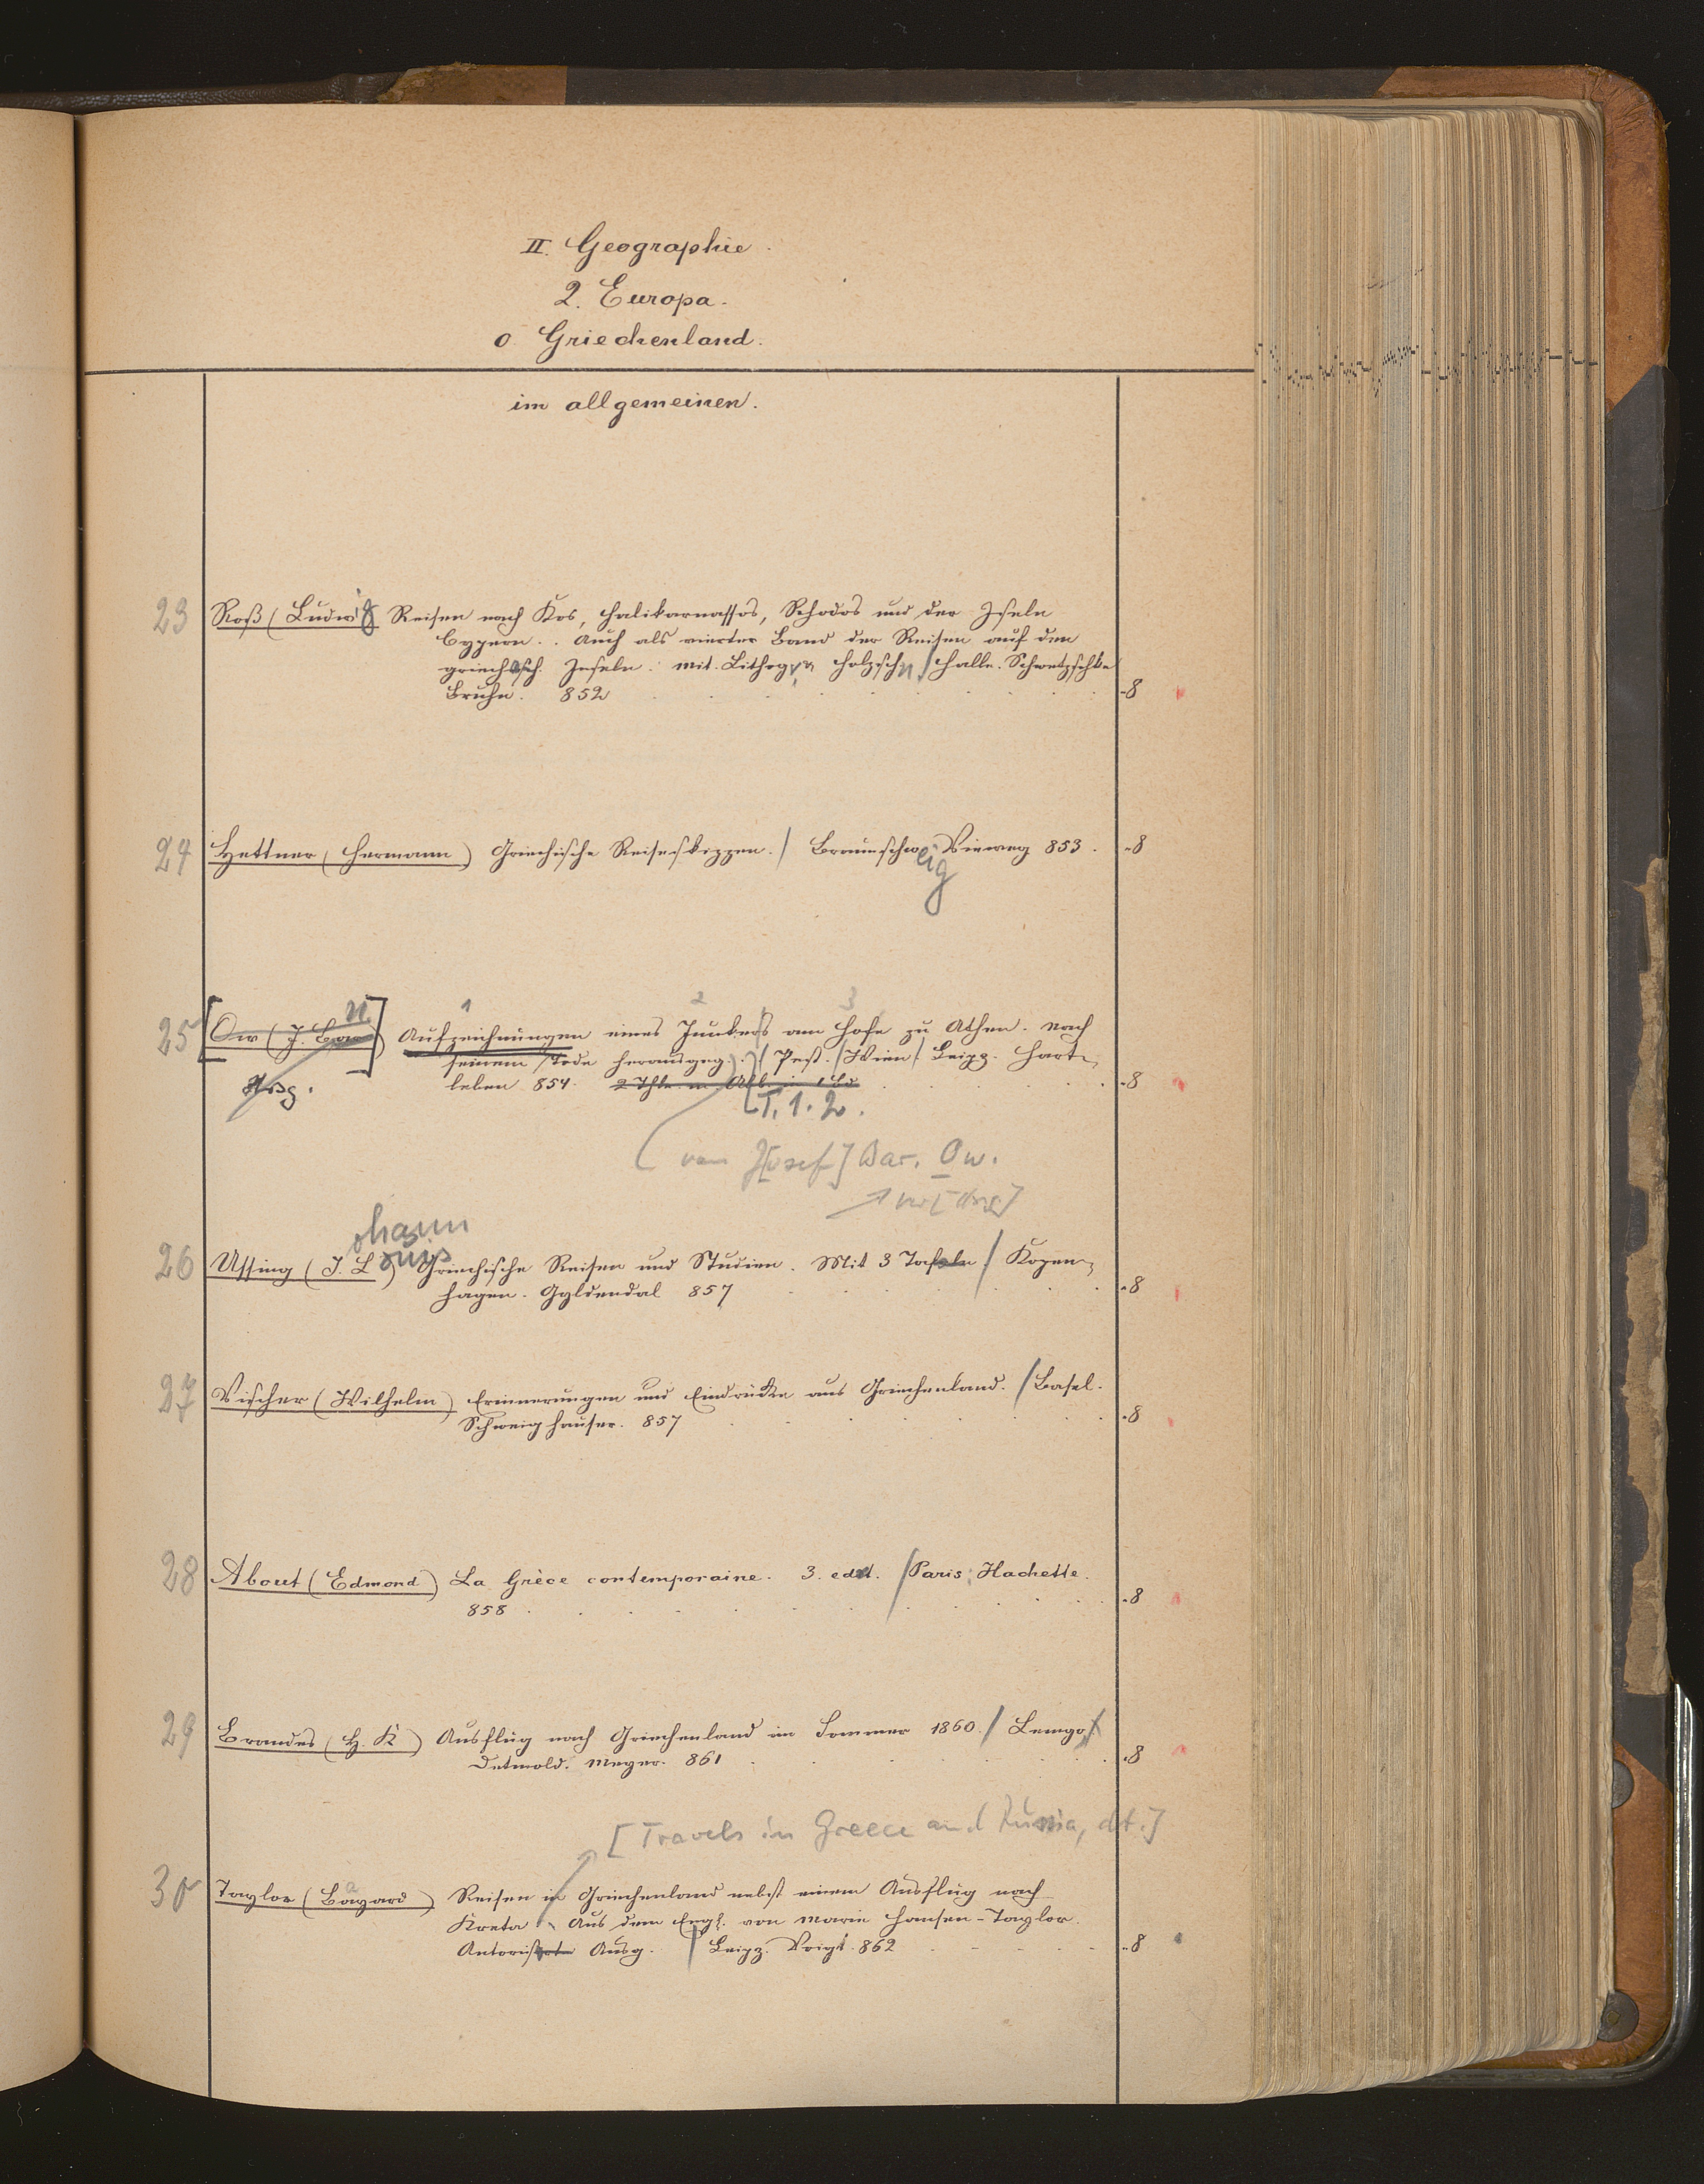 II. Geographie.
2. Europa.
o Griechenland.
im allgemeinen.
23 Roß (Ludwig) Reisen nach Kos, Halikarnassos, Rhodos und der Insel
Cypern. . Auch als vierter Band der Reisen auf den
griech. Inseln. Mit Lithogr. Holzschn. / Halle. Schwetzschke
Bruhn. 852 -8
24 Hettner (Hermann) Griechische Reiseskizzen. / Braunschweig Vieweg 853. -8
25 [Ow (J. Bar.)] Aufzeichnungen eines Junkers am Hofe zu Athen. Nach
1 2 3
seinem Tode herausgeg. / Pest. / Wien / Leipz. Hart-
Hrsg. leben 854. 2 Thle in -8
T. 1. 2.
von J[osef] Bar. Ow.
26 Ussing (Johann Louis) Griechische Reisen und Studien. Mit 3 Tafeln / Kopen-
hagen. Gyldendal 857 -8
27 Vischer (Wilhelm) Erinnerungen und Eindrücke aus Griechenland. / Basel.
Schweighauser. 857 -8
28 About (Edmond) La Grèce contemporaine. 3. ed. / Paris. Hachette.
858 -8
29 Brandes (H. K) Ausflug nach Griechenland im Sommer 1860. / Lemgo /
Detmold. Meyer. 861 -8
[Travels in Greece and Russia, dt.]
30 Taylor (Bayard) Reisen in Griechenland nebst einem Ausflug nach
Kreta. Aus dem Engl. von Marie Hansen-Taylor.
Autorisirte Ausg. / Leipz. Voigt. 862 -8